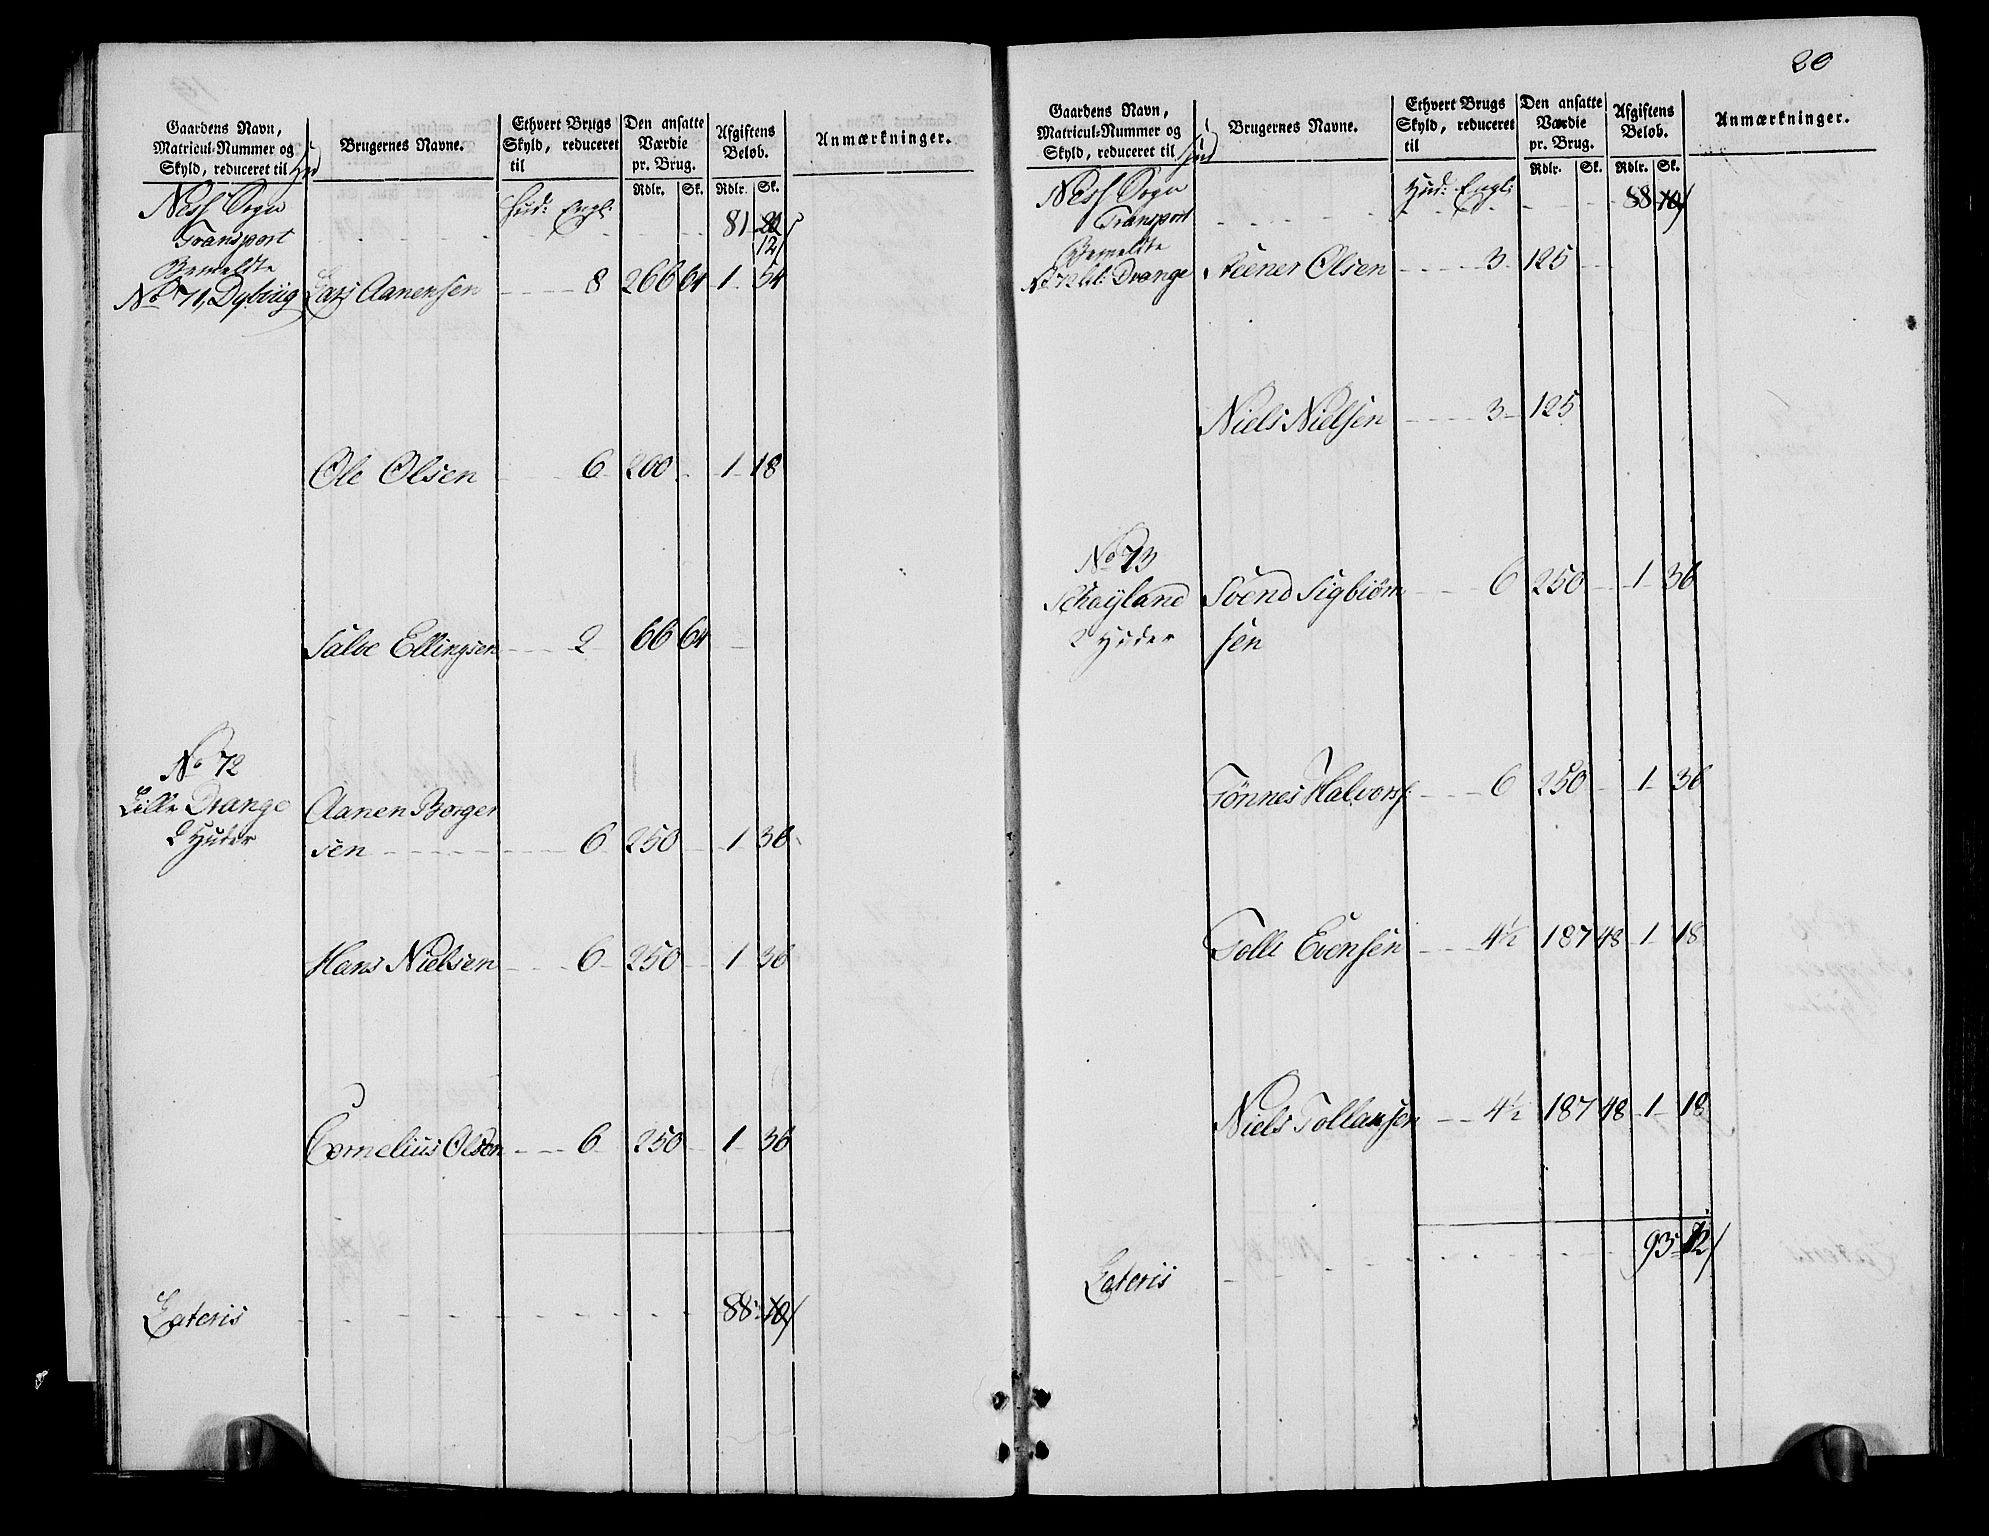 Gaardens Navn, Matricul-Nummer og Skyld, reduceret til Hud
Brugernes Navne.
Ethvert Brugs Skyld, reduceret til
Den ansatte Værdie pr. Brug.
Afgiftens Beløb.
Anmærkninger.
Rdlr. Sk. Rdlr. Sk.
Ness Sogn Hud: Engl:
Transport 81
12
Bemeldte
No 71, Dybvig Lars Aanensen 8 266 64 1 54
Ole Olsen 6 200 1 18
Salve Ellingsen 2 66 64
No 72
Lille Drange Aanen Borger
2 Huder sen 6 250 1 36
Hans Nielsen 6 250 1 36
Cornelius Olsen 6 250 1 36
Lateris 88
20
Gaardens Navn, Matricul-Nummer og Skyld, reduceret til Hud
Brugernes Navne.
Ethvert Brugs Skyld, reduceret til
Den ansatte Værdie pr. Brug.
Afgiftens Beløb.
Anmærkninger.
Rdlr. Sk. Rdlr. Sk.
Ness Sogn Hud: Engl:
Transport 88
Bemeldte
No 72 lil: Drange Steener Olsen 3 125
Niels Nielsen 3 125
No 73
Schøyland Svend Sigbiørn 6 250 1 36
2 Huder sen
Tønnes Halvors: 6 250 1 36
Tolle Evensen 4½ 187 48 1 18
Niels Tollaksen 4½ 187 48 1 18
Lateris 93 12